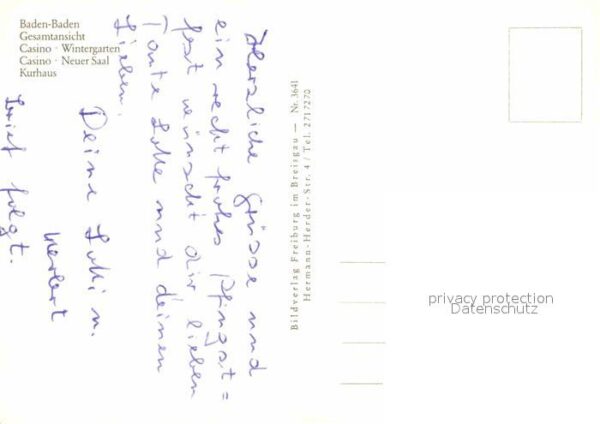 Baden-Baden
Gesamtansicht
Casino · Wintergarten
Casino · Neuer Saal
Kurhaus
Herzliche Grüsse und
ein recht frohes Pfingst=
fest wünscht dir lieben
Tante und deinen
Lieben,
Deine u.
Herbert
Brief folgt.
Bildverlag Freiburg im Breisgau — Nr. 3641
Hermann-Herder-Str. 4 / Tel. 2717270
privacy protection
Datenschutz